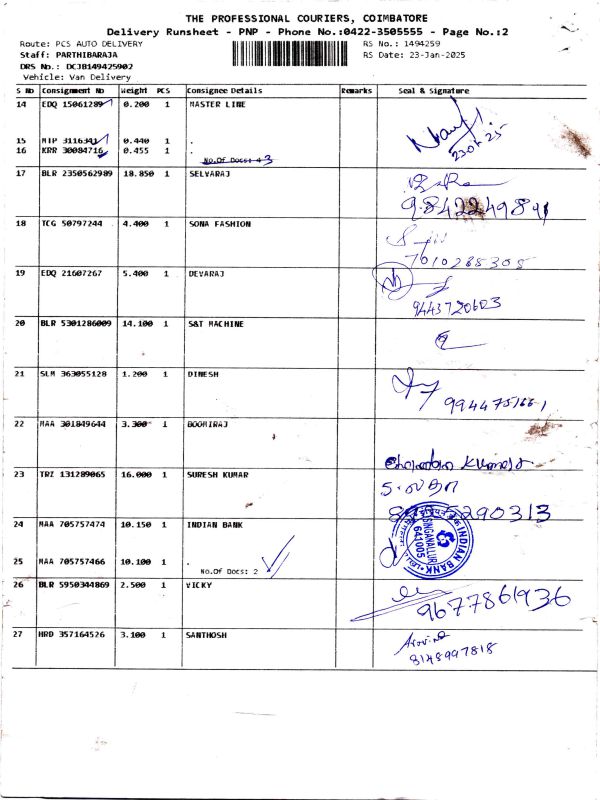 THE PROFESSIONAL COURIERS, COIMBATORE
Delivery Runsheet - PNP - Phone No.:0422-3505555 - Page No.:2
Route: PCS AUTO DELIVERY RS No.: 1494259
Staff: PARTHIBARAJA RS Date: 23-Jan-2025
DRS No.: DCJB149425902
Vehicle: Van Delivery
S No Consignment No Weight PCS Consignee Details Remarks Seal & Signature
14 EDQ 15061289 0.200 1 MASTER LINE
15 MTP 3116341 0.440 1 .
23.01.25
16 KRR 30084716 0.455 1 .
No.Of Docs: 3
17 BLR 2350562989 18.850 1 SELVARAJ
9842249891
18 TCG 50797244 4.400 1 SONA FASHION
7010285305
19 EDQ 21607267 5.400 1 DEVARAJ
9443720603
20 BLR 5301286009 14.100 1 S&T MACHINE
21 SLM 363055128 1.200 1 DINESH
9944751661
22 MAA 301849644 3.300 1 BOOMIRAJ
23 TRZ 131289065 16.000 1 SURESH KUMAR
24 MAA 705757474 10.150 1 INDIAN BANK
INDIAN BANK
SINGANALLUR
641005
25 MAA 705757466 10.100 1 .
No.Of Docs: 2
26 BLR 5950344869 2.500 1 VICKY
9677861936
27 HRD 357164526 3.100 1 SANTHOSH
Aravind
8148997818